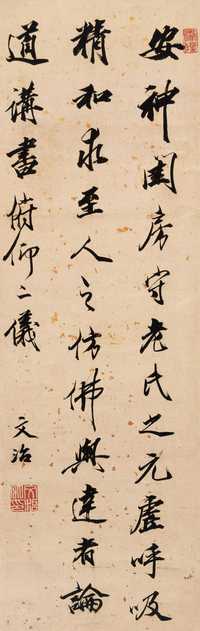 安神閨房守老氏之元虛呼吸
精和求至人之彷彿與達者論
道講書俯仰二儀
文治